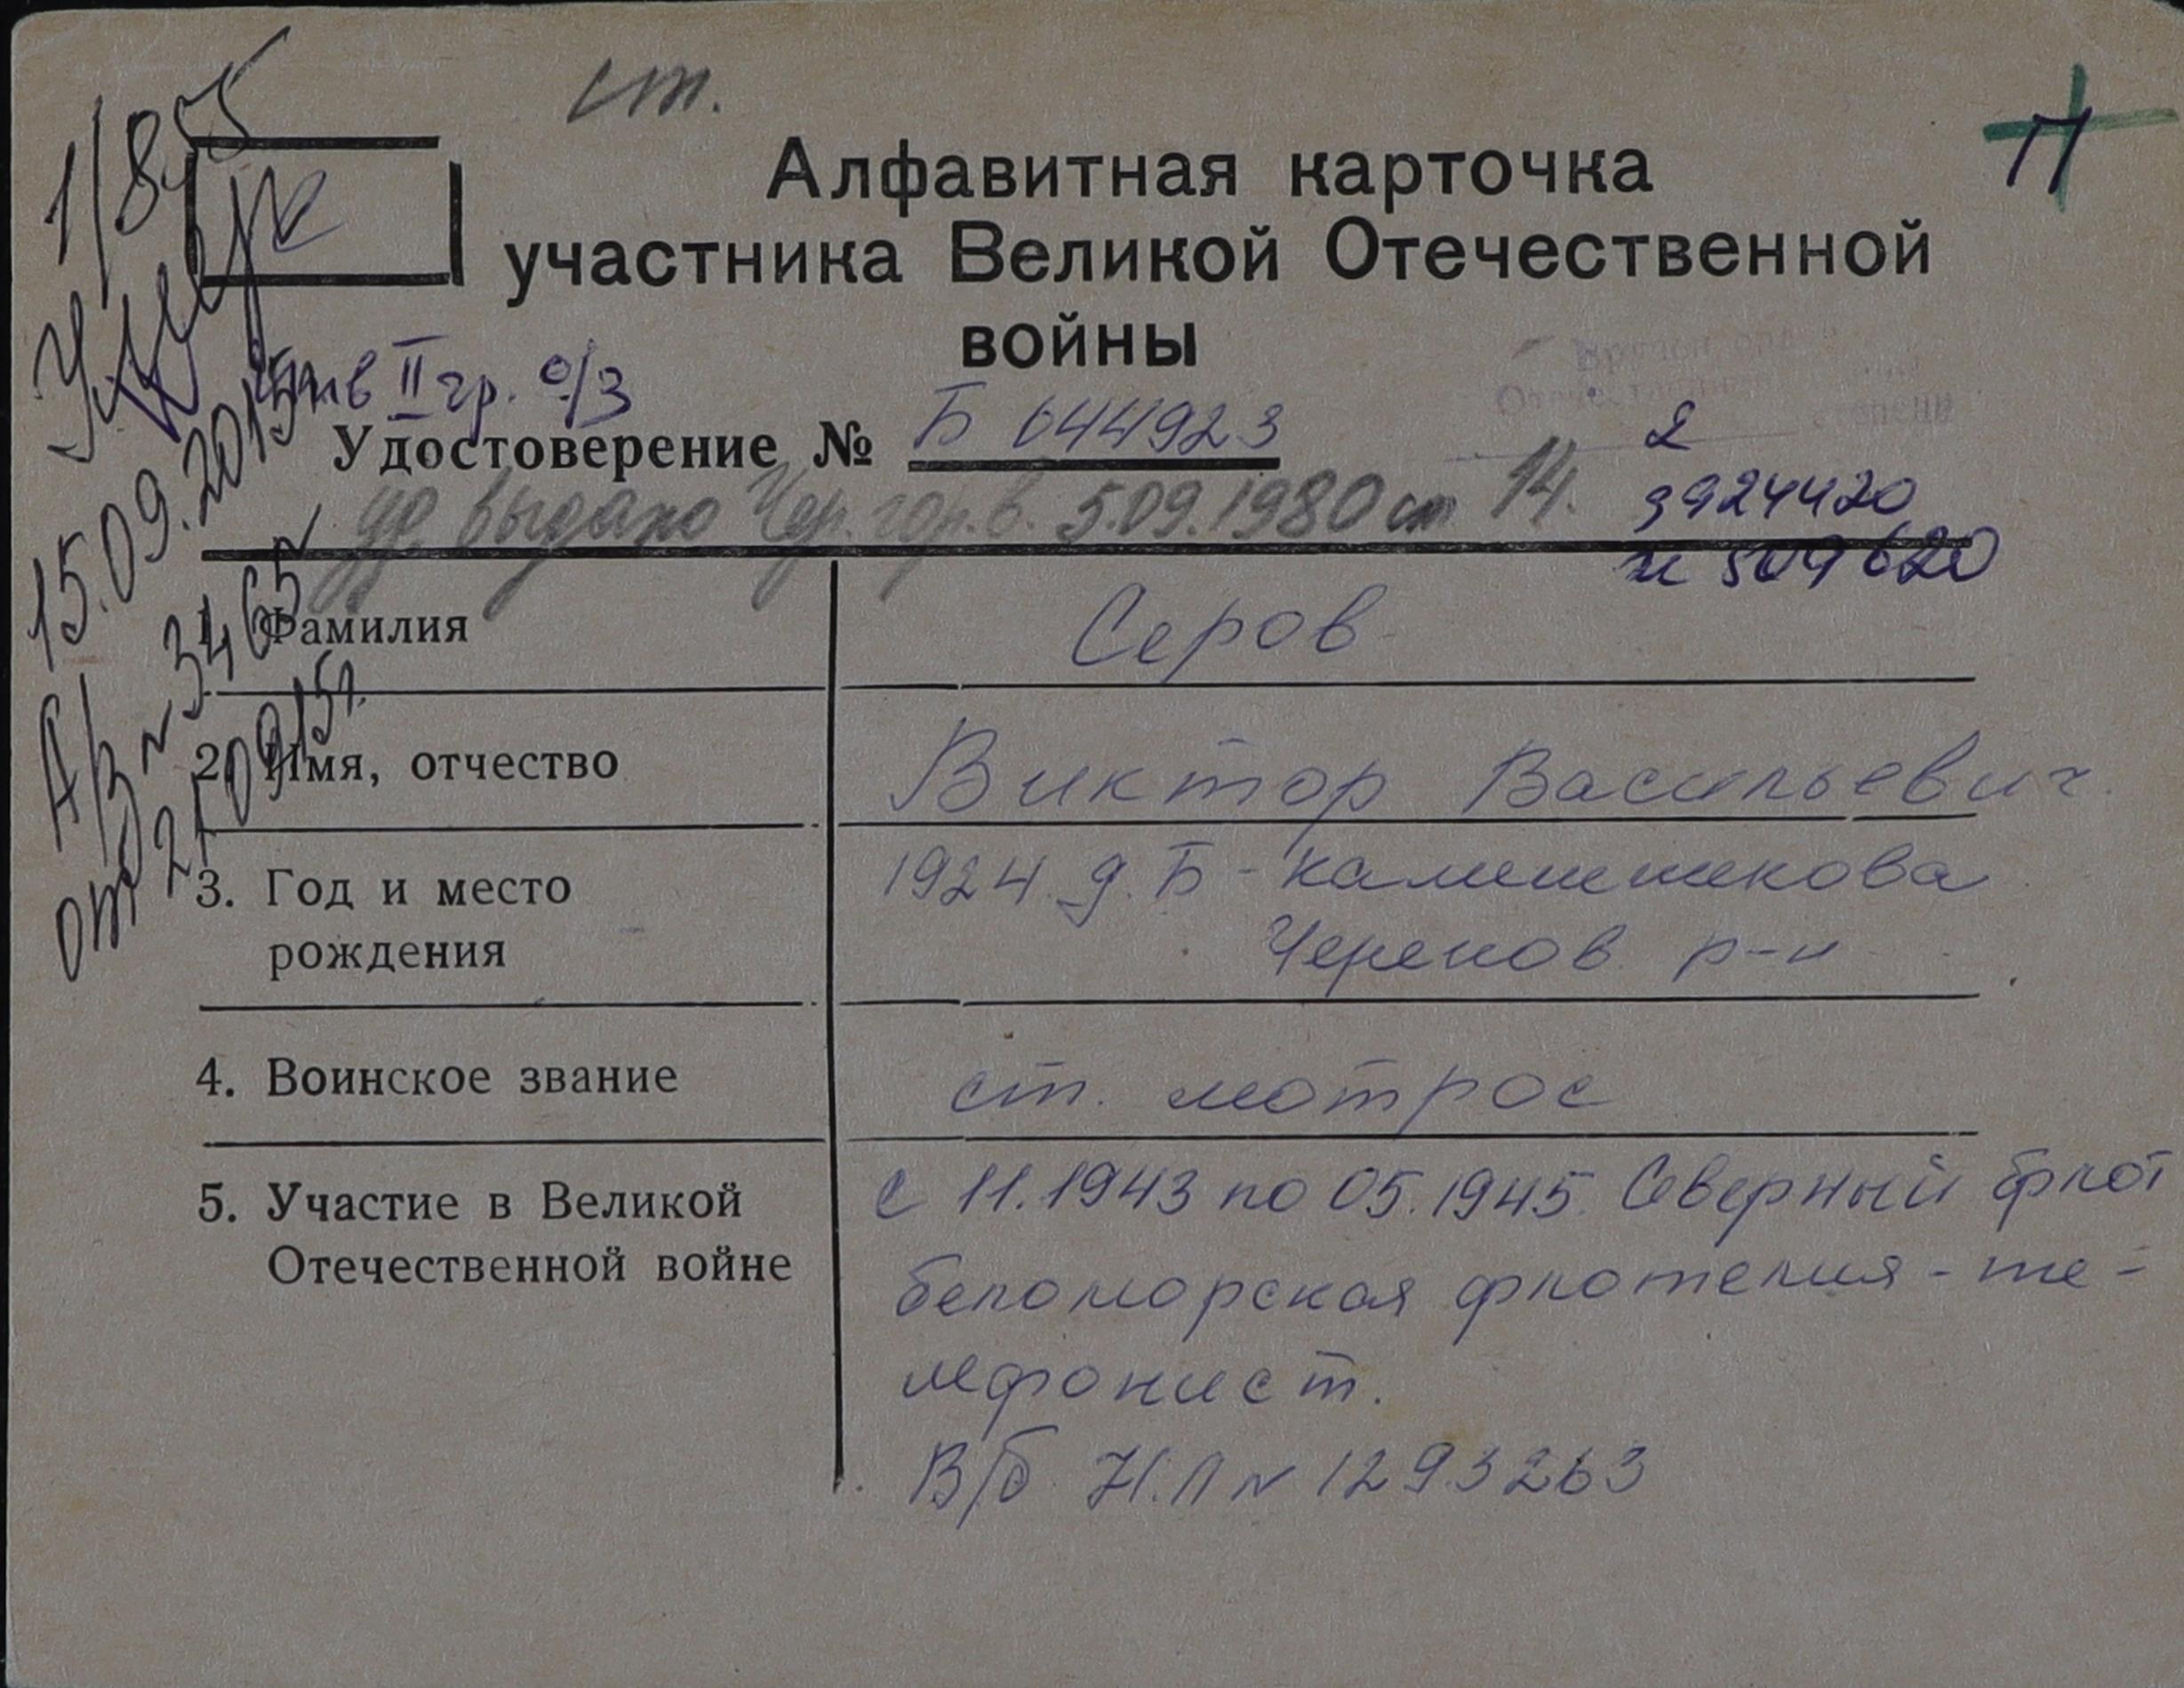 ст.
П
Алфавитная карточка
участника Великой Отечественной
войны
1/855
Умер
15.09.2015г
А/З № 3465
от 21.09.15г.
инв II гр. о/з
Удостоверение № Б 644923
степени
2
уд. выдано Чер. гор. в. 5.09.1980 ст 14.
3924420
509620
1. Фамилия
Серов
2. Имя, отчество
Виктор Васильевич.
3. Год и место
рождения
1924. д. Б-Камешкова
Черепов. р-н
4. Воинское звание
ст. мотрос
5. Участие в Великой
Отечественной войне
с 11.1943 по 05.1945. Северный флот
беломорская флотелия - те-
лефонист.
В/б Н.Л № 1293263